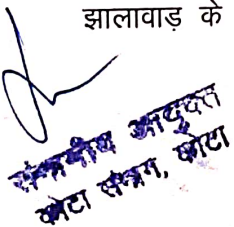 झालावाड़ के
संभागीय आयुक्त
कोटा संभाग, कोटा